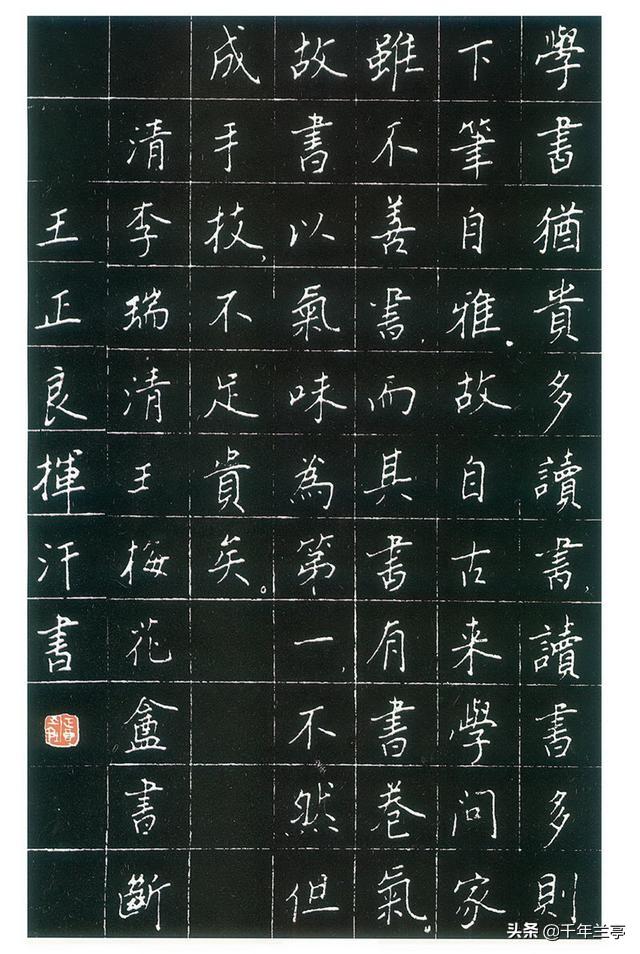 學書猶貴多讀書,讀書多則
下筆自雅。故自古来學問家
雖不善書,而其書有書卷氣。
故書以氣味為第一,不然但
成手技,不足貴矣。
清李瑞清王梅花盦書斷
王正良揮汗書
头条 @千年兰亭